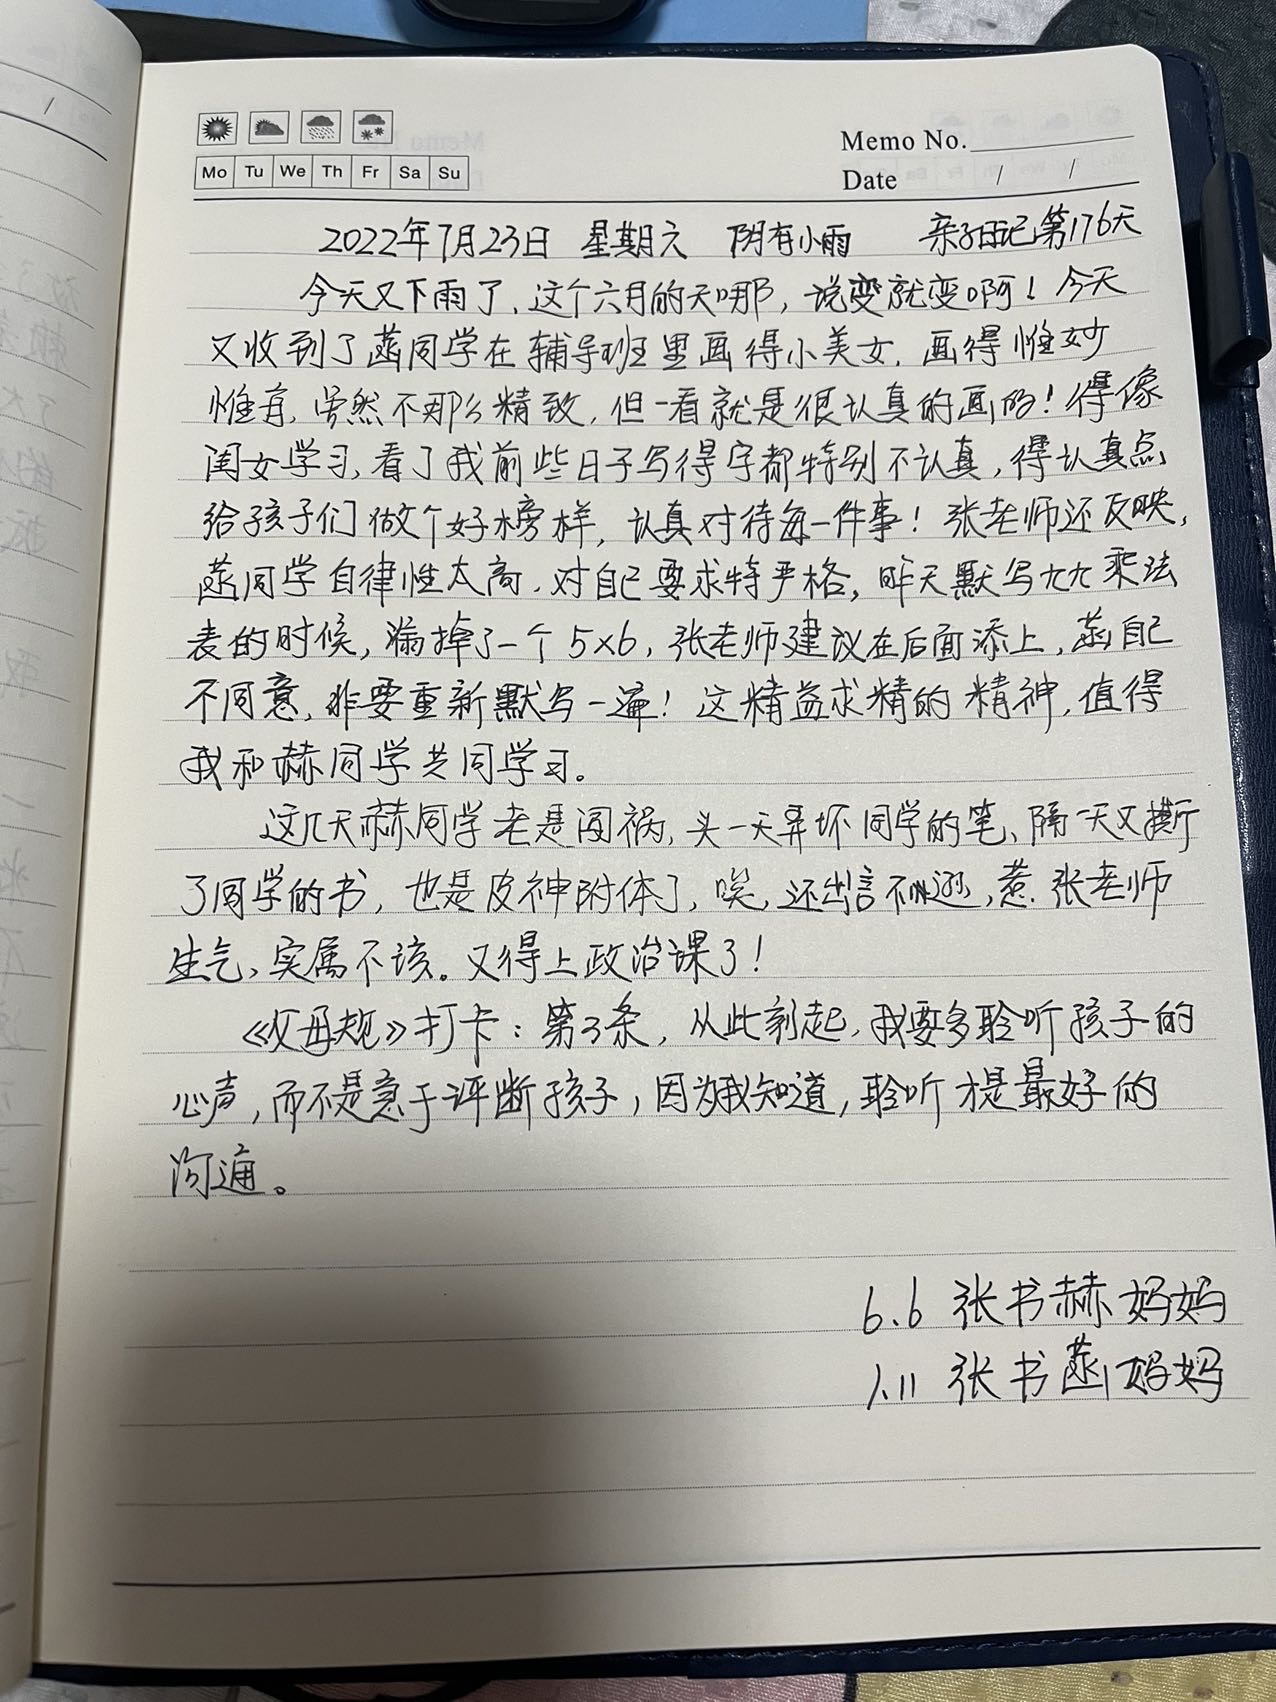 Memo No.
Mo Tu We Th Fr Sa Su
Date / /
2022年7月23日 星期六 阴有小雨 亲子日记第176天
今天又下雨了，这个六月的天哪，说变就变啊！今天
又收到了菡同学在辅导班里画得小美女，画得惟妙
惟肖，虽然不那么精致，但一看就是很认真的画的！得像
闺女学习，看了我前些日子写得字都特别不认真，得认真点，
给孩子们做个好榜样，认真对待每一件事！张老师还反映，
菡同学自律性太高，对自己要求特严格，昨天默写九九乘法
表的时候，漏掉了一个5×6，张老师建议在后面添上，菡自己
不同意，非要重新默写一遍！这精益求精的精神，值得
我和赫同学共同学习。
这几天赫同学老是闯祸，头一天弄坏同学的笔、隔一天又撕
了同学的书，也是皮神附体了，唉，还出言不逊，惹张老师
生气，实属不该。又得上政治课了！
《父母规》打卡：第3条，从此刻起，我要多聆听孩子的
心声，而不是急于评断孩子，因为我知道，聆听才是最好的
沟通。
6.6 张书赫妈妈
1.11 张书菡妈妈